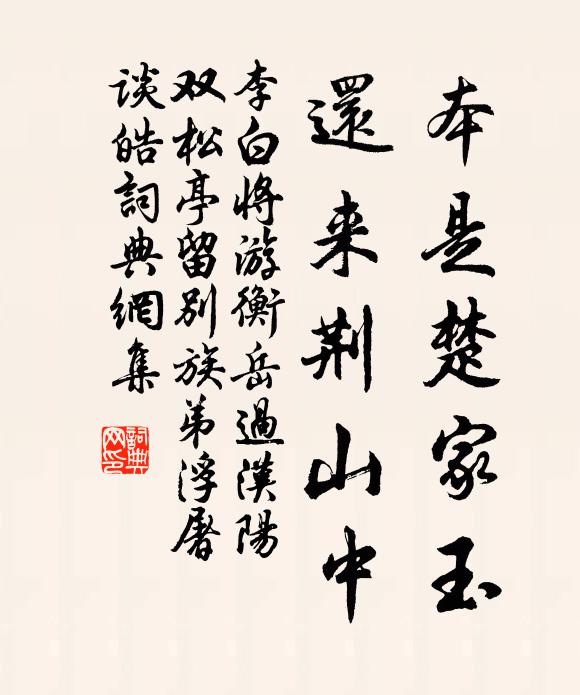 本是楚家玉
還来荆山中
李白将游衡岳過漢陽
双松亭留别族弟浮屠
谈皓詞典網集
詞典
网印